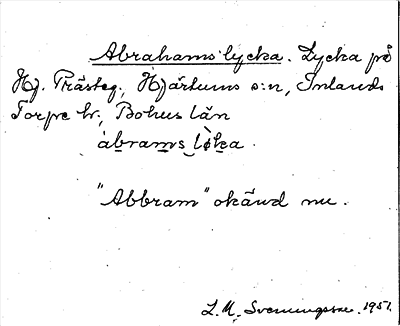 Abrahams lycka. Lycka på
Hj. Prästeg., Hjärtums s:n, Inlands
Torpe hr., Bohus län
àbrams lø̀ka.
"Abbram" okänd nu.
L. M. Svenungsson. 1951.